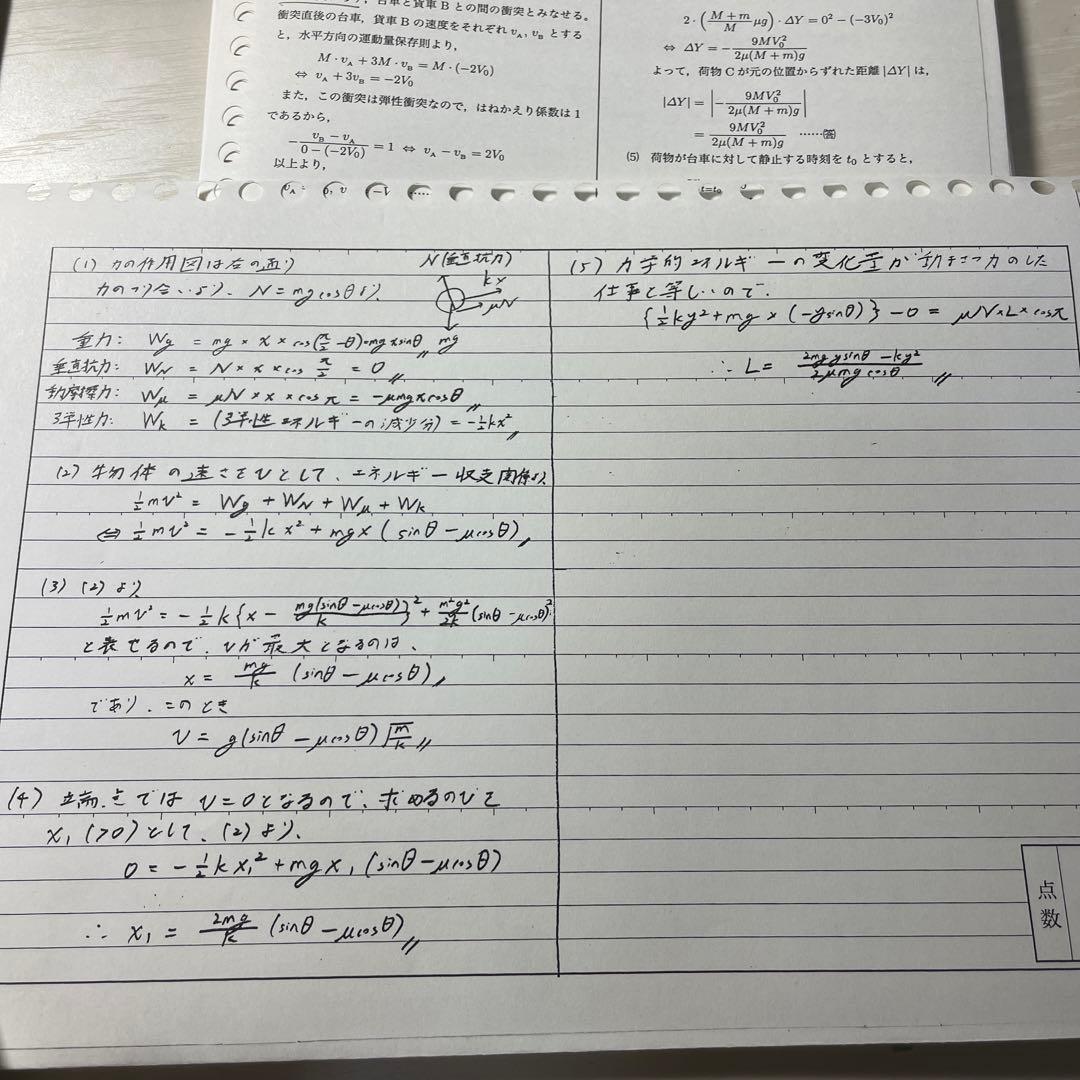 台車と貨車Bとの間の衝突とみなせる。
衝突直後の台車，貨車Bの速度をそれぞれ v_A, v_B とする
と，水平方向の運動量保存則より，
M・v_A + 3M・v_B = M・(−2V₀)
⇔ v_A + 3v_B = −2V₀
また，この衝突は弾性衝突なので，はねかえり係数は1
であるから，
−(v_B − v_A)/(0 − (−2V₀)) = 1 ⇔ v_A − v_B = 2V₀
以上より，
2・((M+m)/M μg)・ΔY = 0² − (−3V₀)²
⇔ ΔY = −9MV₀²/(2μ(M+m)g)
よって，荷物Cが元の位置からずれた距離 |ΔY| は，
|ΔY| = |−9MV₀²/(2μ(M+m)g)|
= 9MV₀²/(2μ(M+m)g) ……(答)
(5) 荷物が台車に対して静止する時刻を t₀ とすると，
(1) 力の作用図は右の通り
N(垂直抗力)
kx
μN
mg
力のつり合いより、N = mg cosθ より、
重力： W_g = mg × x × cos(π/2 − θ) = mgx sinθ〃
垂直抗力： W_N = N × x × cos π/2 = 0〃
動摩擦力： W_μ = μN × x × cosπ = −μmgx cosθ〃
弾性力： W_k = (弾性エネルギーの減少分) = −½kx²〃
(2) 物体の速さをvとして、エネルギー収支関係より
½mv² = W_g + W_N + W_μ + W_k
⇔ ½mv² = −½kx² + mgx(sinθ − μcosθ)〃
(3) (2)より
½mv² = −½k{x − mg(sinθ − μcosθ)/k}² + m²g²/2k (sinθ − μcosθ)²
と表せるので、vが最大となるのは、
x = mg/k (sinθ − μcosθ)〃
であり、このとき
v = g(sinθ − μcosθ)√(m/k)〃
(4) 端点では v = 0 となるので、求めるのひを
x₁ (>0) として、(2)より、
0 = −½kx₁² + mgx₁(sinθ − μcosθ)
∴ x₁ = 2mg/k (sinθ − μcosθ)〃
(5) 力学的エネルギーの変化量が動まさつ力のした
仕事と等しいので、
{½ky² + mg × (−y sinθ)} − 0 = μN × L × cosπ
∴ L = (2mgy sinθ − ky²)/(2μmg cosθ)〃
点数